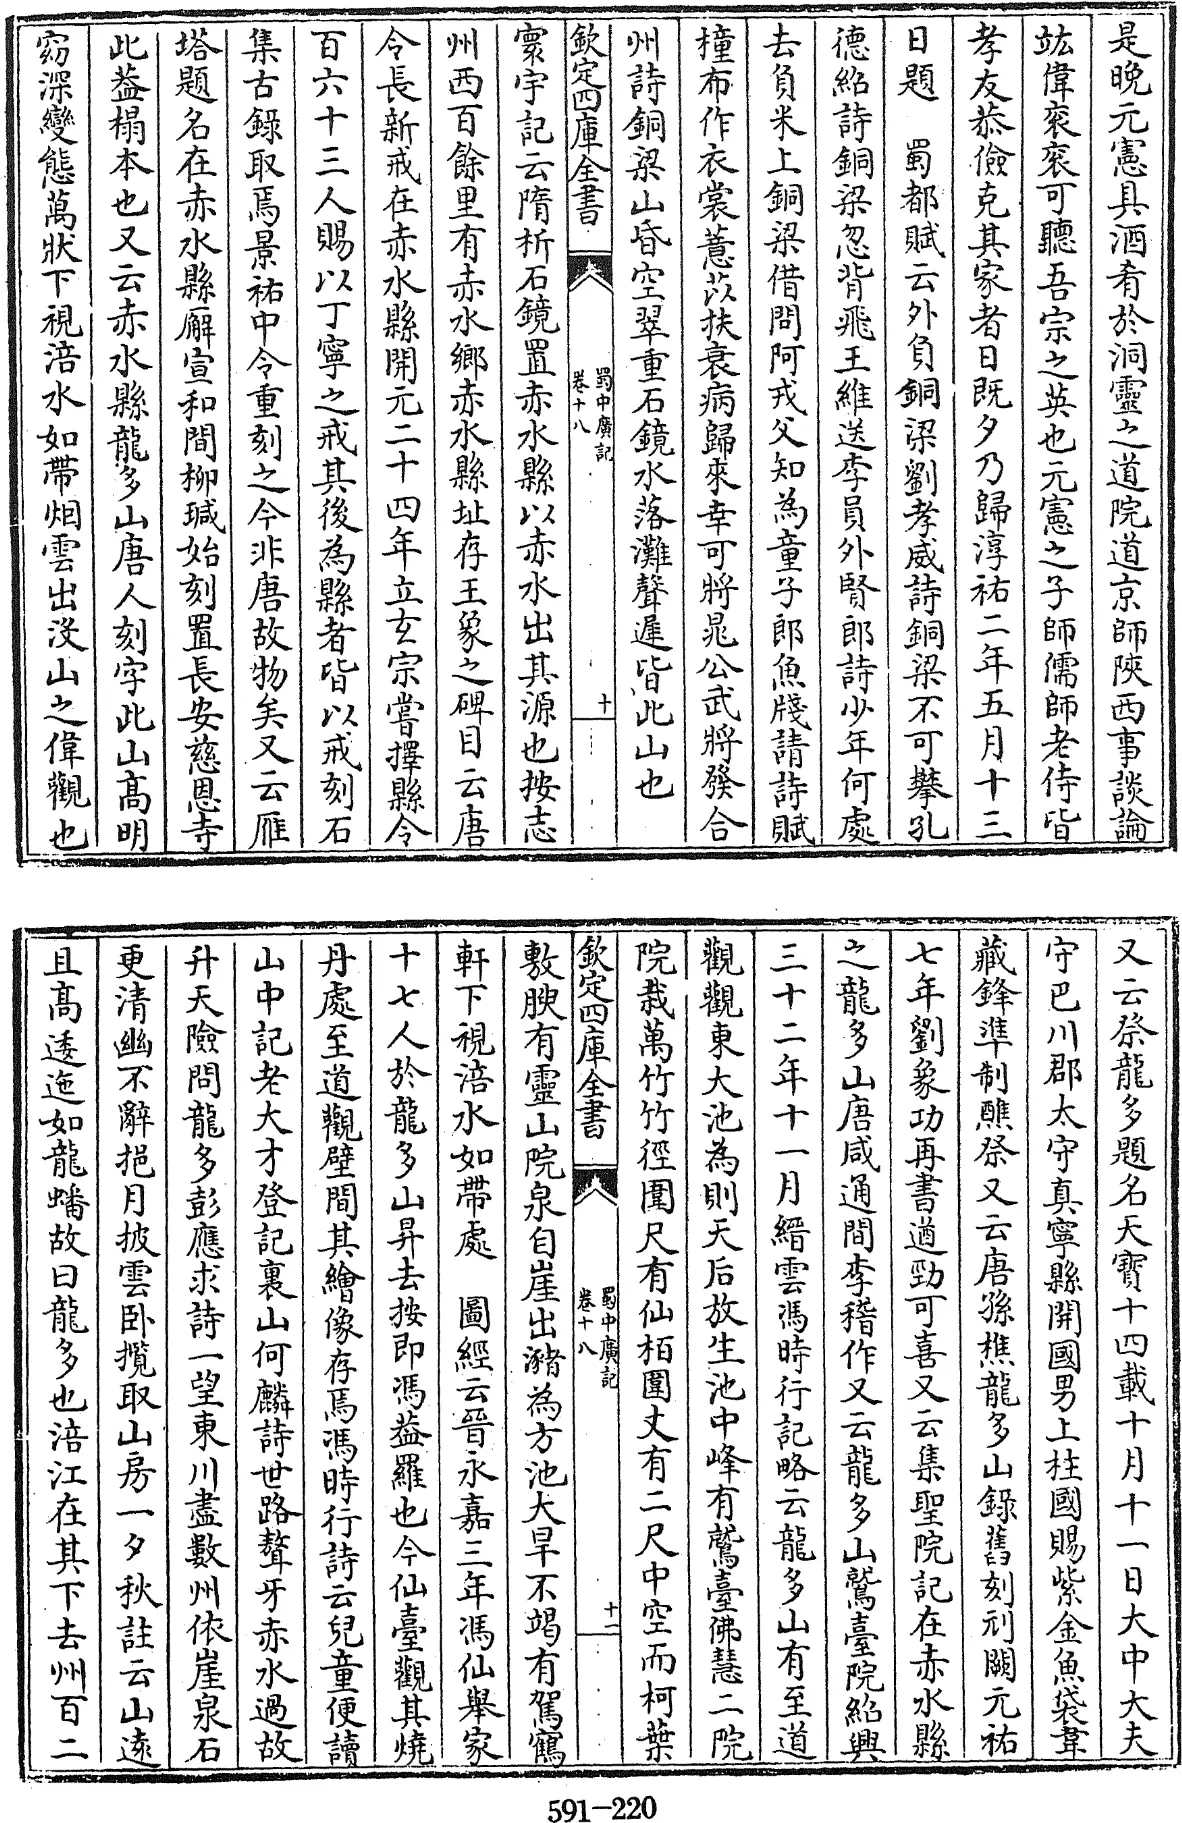 是晩元憲具酒肴於洞靈之道院道京師陜西事談論
竑偉衮衮可聽吾宗之英也元憲之子師儒師老侍皆
孝友恭儉克其家者日既夕乃歸淳祐二年五月十三
日題　蜀都賦云外負銅梁劉孝威詩銅梁不可攀孔
德紹詩銅梁忽背飛王維送李員外賢郎詩少年何處
去負米上銅梁借問阿戎父知為童子郎魚牋請詩賦
橦布作衣裳薏苡扶衰病歸來幸可將晁公武將發合
州詩銅梁山昏空翠重石鏡水落灘聲遲皆此山也
欽定四庫全書
蜀中廣記
卷十八
十
寰宇記云隋析石鏡置赤水縣以赤水出其源也按志
州西百餘里有赤水鄉赤水縣址存王象之碑目云唐
令長新戒在赤水縣開元二十四年立玄宗嘗擇縣令
百六十三人賜以丁寧之戒其後為縣者皆以戒刻石
集古錄取焉景祐中令重刻之今非唐故物矣又云雁
塔題名在赤水縣廨宣和間柳瑊始刻置長安慈恩寺
此葢榻本也又云赤水縣龍多山唐人刻字此山髙明
窈深變態萬狀下視涪水如帶烟雲出没山之偉觀也
又云祭龍多題名天寶十四載十月十一日大中大夫
守巴川郡太守真寧縣開國男上柱國賜紫金魚袋韋
藏鋒準制醮祭又云唐孫樵龍多山錄舊刻刓闕元祐
七年劉象功再書遒勁可喜又云集聖院記在赤水縣
之龍多山唐咸通間李稽作又云龍多山鷲臺院紹興
三十二年十一月縉雲馮時行記略云龍多山有至道
觀觀東大池為則天后放生池中峰有鷲臺佛慧二院
院栽萬竹竹徑圍尺有仙栢圍丈有二尺中空而柯葉
欽定四庫全書
蜀中廣記
卷十八
十一
敷腴有靈山院泉自崖出瀦為方池大旱不竭有駕鶴
軒下視涪水如帶處　圖經云晉永嘉三年馮仙舉家
十七人於龍多山昇去按即馮葢羅也今仙臺觀其燒
丹處至道觀壁間其繪像存焉馮時行詩云兒童便讀
山中記老大才登記裏山何麟詩世路聱牙赤水過故
升天險問龍多彭應求詩一望東川盡數州依崖泉石
更清幽不辭挹月披雲卧攬取山房一夕秋註云山逺
且髙逶迤如龍蟠故曰龍多也涪江在其下去州百二
591-220